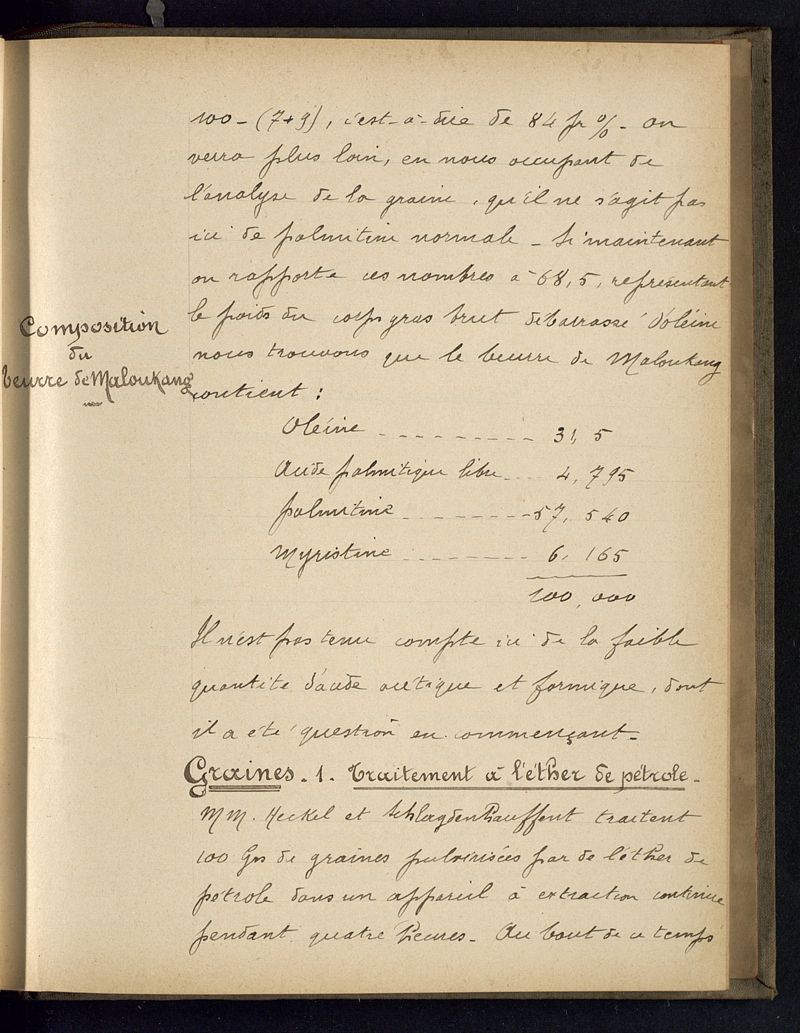 100 - (7+9), c'est-à-dire de 84 pr % - on
verra plus loin, en nous occupant de
l'analyse de la graine, qu'il ne s'agit pas
ici de palmitine normale - Si maintenant
on rapporte ces nombres à 68,5, représentant
le poids du corps gras brut débarassé d'oléine
nous trouvons que le beurre de Maloukang
contient :
Composition
du
beurre de Maloukang
Oléine - - - - - - - - - - 31, 5
Acide palmitique libre - - - 4, 795
palmitine - - - - - - - - - 57, 540
Myristine - - - - - - - - - 6, 165
100,000
Il n'est pas tenu compte ici de la faible
quantité d'acide acétique et formique, dont
il a été question en commençant -
Graines - 1. Traitement à l'éther de pétrole -
MM. Heckel et Schlagdenhauffent traitent
100 Grs de graines pulvérisées par de l'éther de
pétrole dans un appareil à extraction continue
pendant quatre heures - Au bout de ce temps